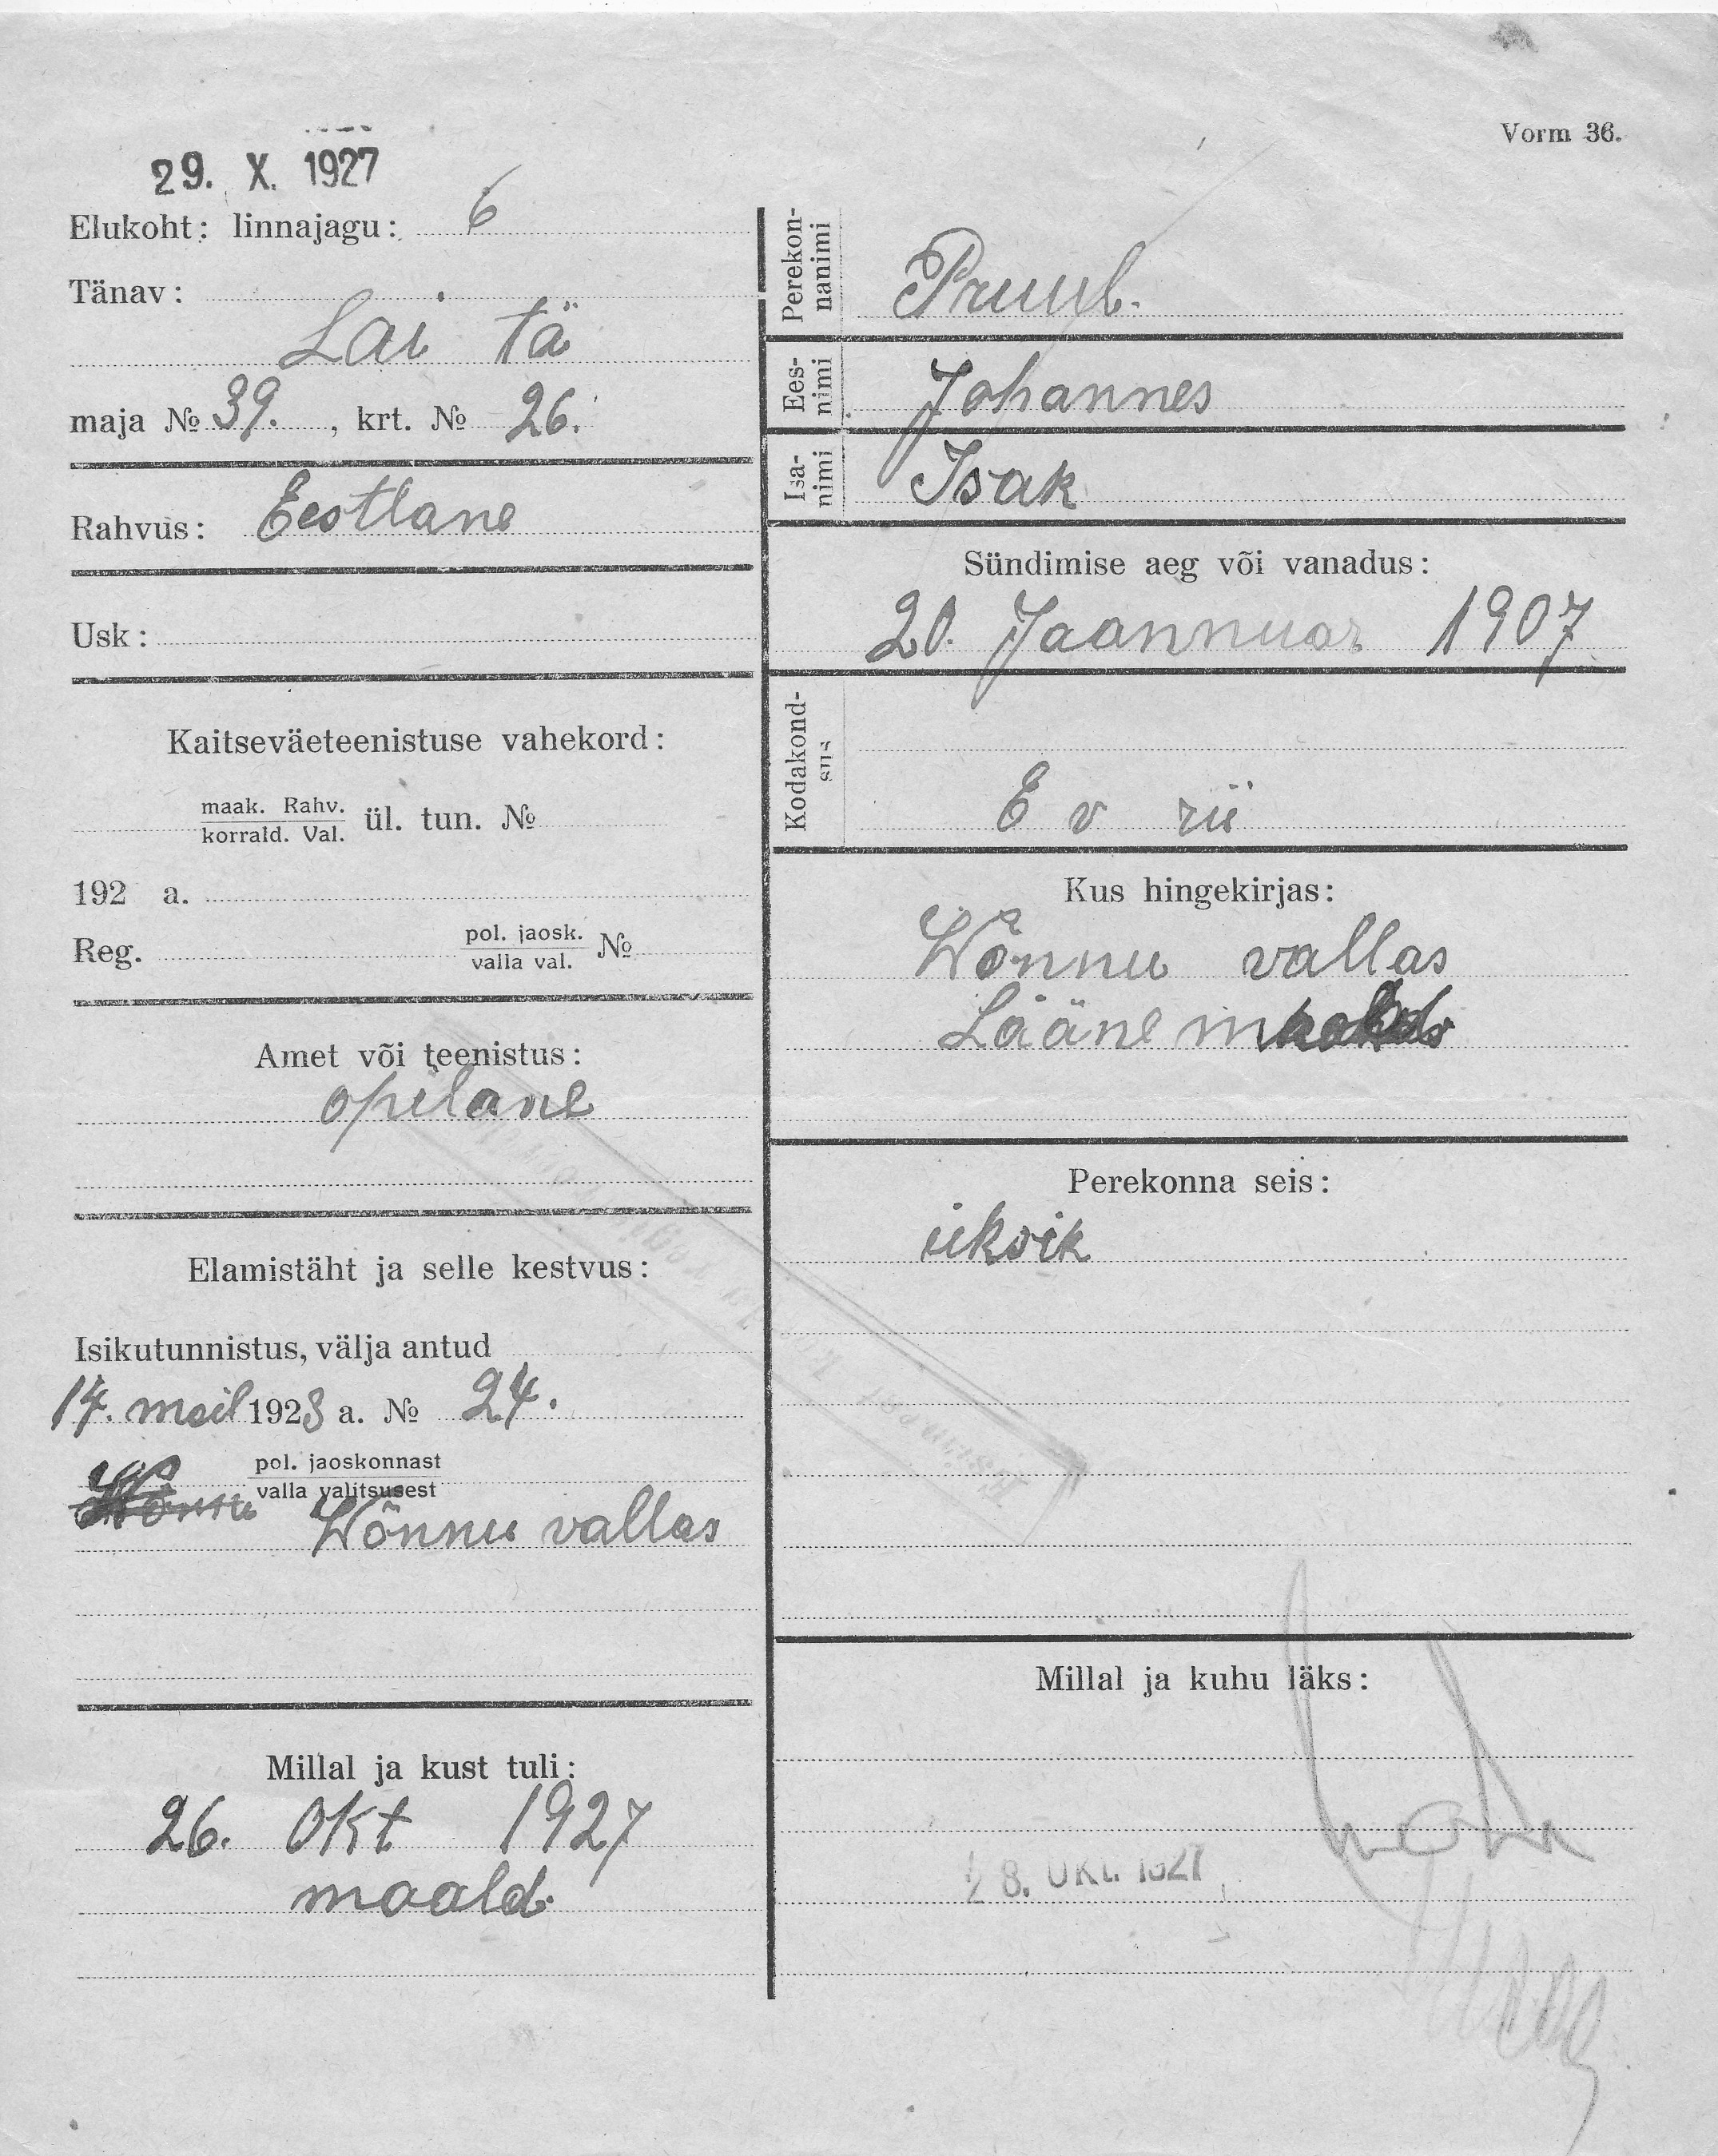 Vorm 36.
29. X. 1927
Elukoht: linnajagu: 6
Tänav:
Lai tä
maja № 39. , krt. № 26.
Rahvus: Eestlane
Usk:
Kaitseväeteenistuse vahekord:
maak. Rahv.
korrald. Val.
ül. tun. №
192 a.
Reg. pol. jaosk. №
valla val.
Amet või teenistus:
opilane
Elamistäht ja selle kestvus:
Isikutunnistus, välja antud
14. meil 1923 a. № 24.
pol. jaoskonnast
valla valitsusest
Wõnnu vallas
Millal ja kust tuli:
26. Okt 1927
maald.
Perekon-
nanimi
Pruul.
Ees-
nimi
Johannes
Isa-
nimi
Isak
Sündimise aeg või vanadus:
20. Jaannuar 1907
Kodakond-
sus
E v rii
Kus hingekirjas:
Wõnnu vallas
Lääne
Perekonna seis:
üksik
Millal ja kuhu läks:
28. OKt. 1927